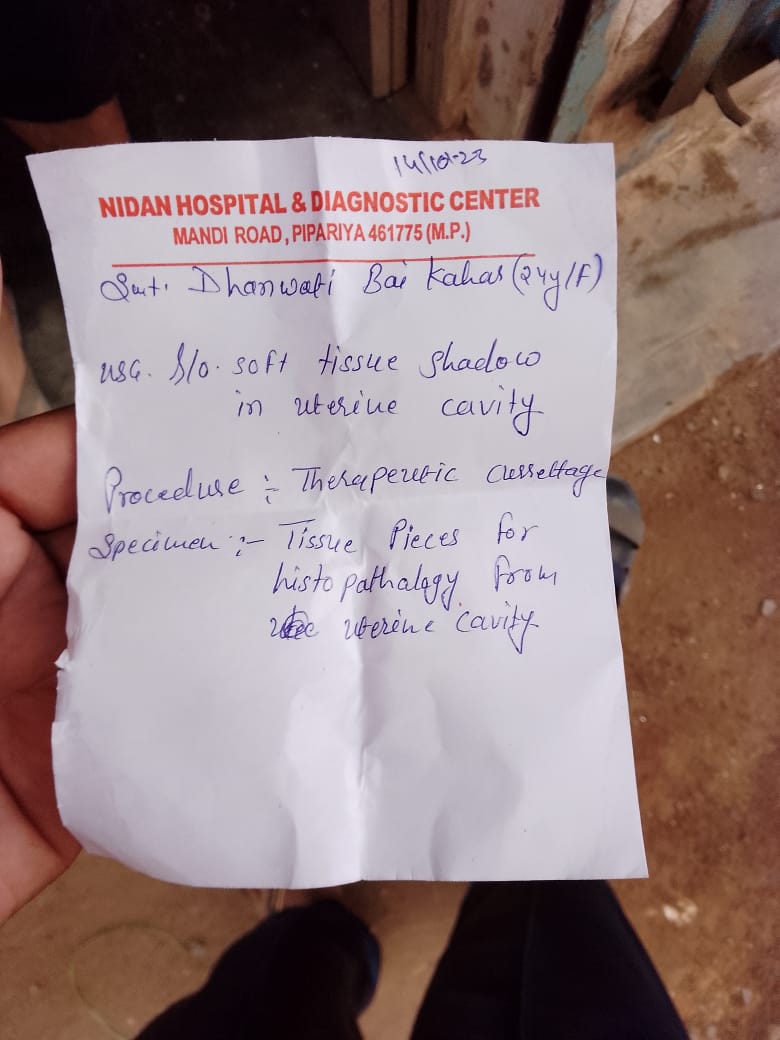 14/10-23
NIDAN HOSPITAL & DIAGNOSTIC CENTER
MANDI ROAD, PIPARIYA 461775 (M.P.)
Smt. Dhanwati Bai Kahar (24y/F)
USG. S/o. soft tissue shadow
in uterine cavity
Procedure :- Therapeutic Curettage
Specimen :- Tissue Pieces for
histopathalogy from
uterine cavity